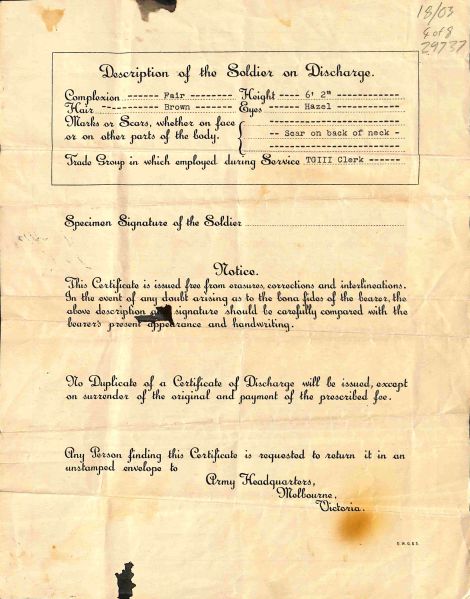 18/03
4 of 8
29737
Description of the Soldier on Discharge.
Complexion ------ Fair ------- Height ---- 6' 2" ----
Hair ----------- Brown -------- Eyes ------ Hazel ------
Marks or Scars, whether on face
or on other parts of the body.
-- Scar on back of neck -
Trade Group in which employed during Service TGIII Clerk ------
Specimen Signature of the Soldier
Notice.
This Certificate is issued free from erasures, corrections and interlineations.
In the event of any doubt arising as to the bona fides of the bearer, the
above description and signature should be carefully compared with the
bearer's present appearance and handwriting.
No Duplicate of a Certificate of Discharge will be issued, except
on surrender of the original and payment of the prescribed fee.
Any Person finding this Certificate is requested to return it in an
unstamped envelope to
Army Headquarters,
Melbourne,
Victoria.